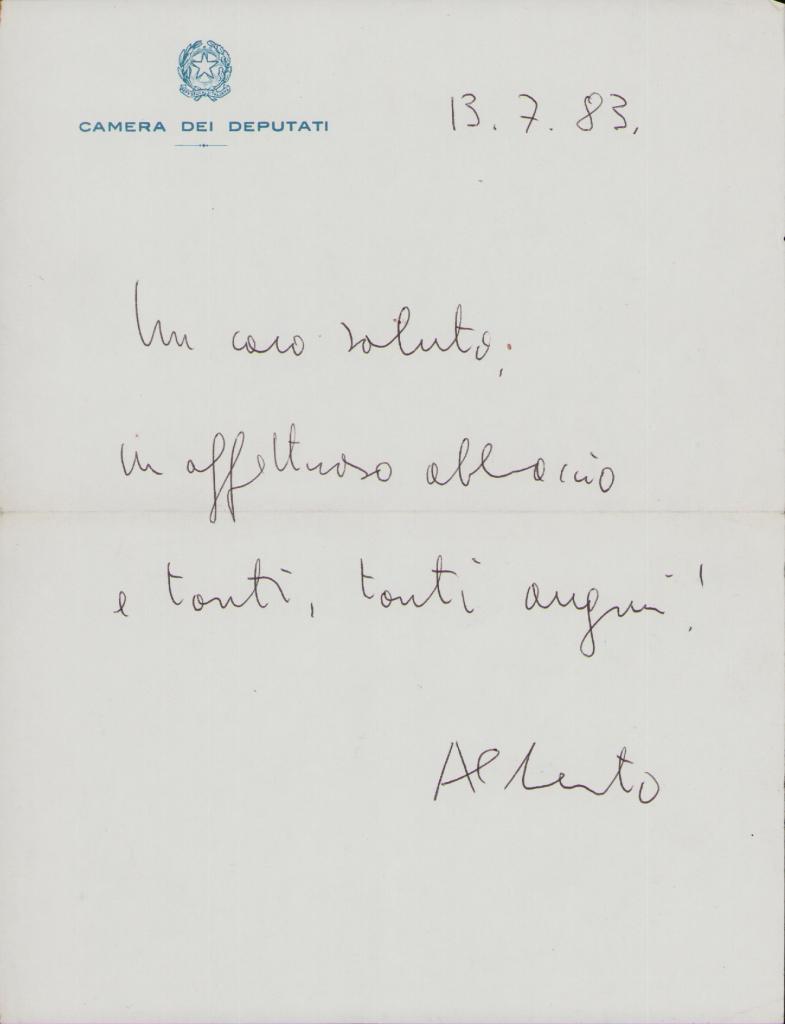 CAMERA DEI DEPUTATI
13. 7. 83.
Un caro saluto,
un affettuoso abbraccio
e tanti, tanti auguri!
Alberto